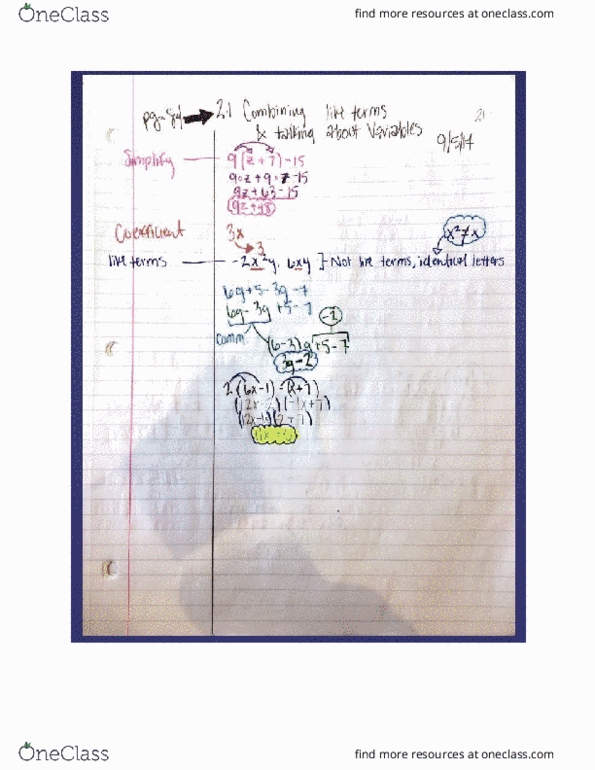 OneClass
find more resources at oneclass.com
pg-84 → 2.1 Combining like terms
& talking about Variables
21
9/5/14
Simplify
9(z+7)-15
9∘z+9∘7-15
9z+63-15
9z+48
Coefficient
3x
3
x²≠x
like terms
-2x²y, 6xy ] Not like terms, identical letters
6g+5-3g-7
6g-3g+5-7
-2
comm
(6-3)g+5-7
3g-2
2(6x-1)-(x+7)
OneClass
find more resources at oneclass.com